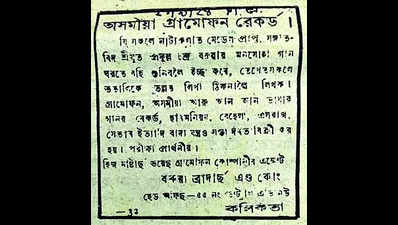 অসমীয়া গ্ৰামোফন ৰেকৰ্ড ।
যি সকলে নাট্যজগত মেডেল প্ৰাপ্ত, সঙ্গীত-
বিদ শ্ৰীযুত প্ৰফুল্ল চন্দ্ৰ বৰুৱাৰ মনমোহা গান
ঘৰতে বহি শুনিবলৈ ইচ্ছা কৰে, তেওঁলোকে
তলৰ লিখা ঠিকনালৈ লিখক।
গ্ৰামোফন, অসমীয়া আৰু আন আন ভাষাৰ
গানৰ ৰেকৰ্ড, হাৰমনিয়ম, বেহেলা, এসৰাজ,
সেতাৰ ইত্যাদি বাদ্য যন্ত্ৰও সস্তা দৰত বিক্ৰী কৰা
হয়। পৰীক্ষা প্ৰাৰ্থনীয়।
হিজ মাষ্টাৰ্চ ভয়েছ গ্ৰামোফন কোম্পানীৰ এজেন্ট
বৰুৱা ব্ৰাদাৰ্ছ এণ্ড কোং
হেড আফিছ—৫৫ নং
কলিকতা
—৩২